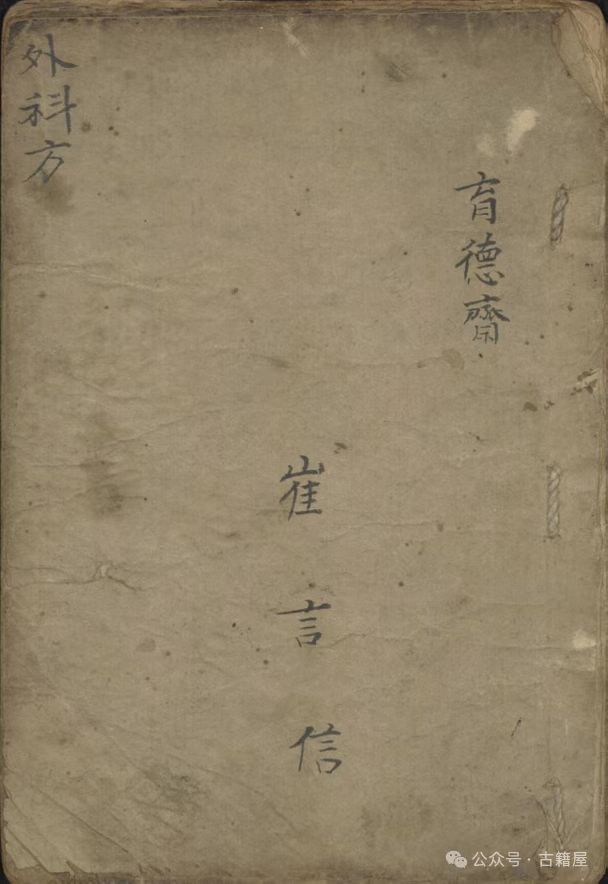 育德齋
崔言信
外科方
公众号·古籍屋